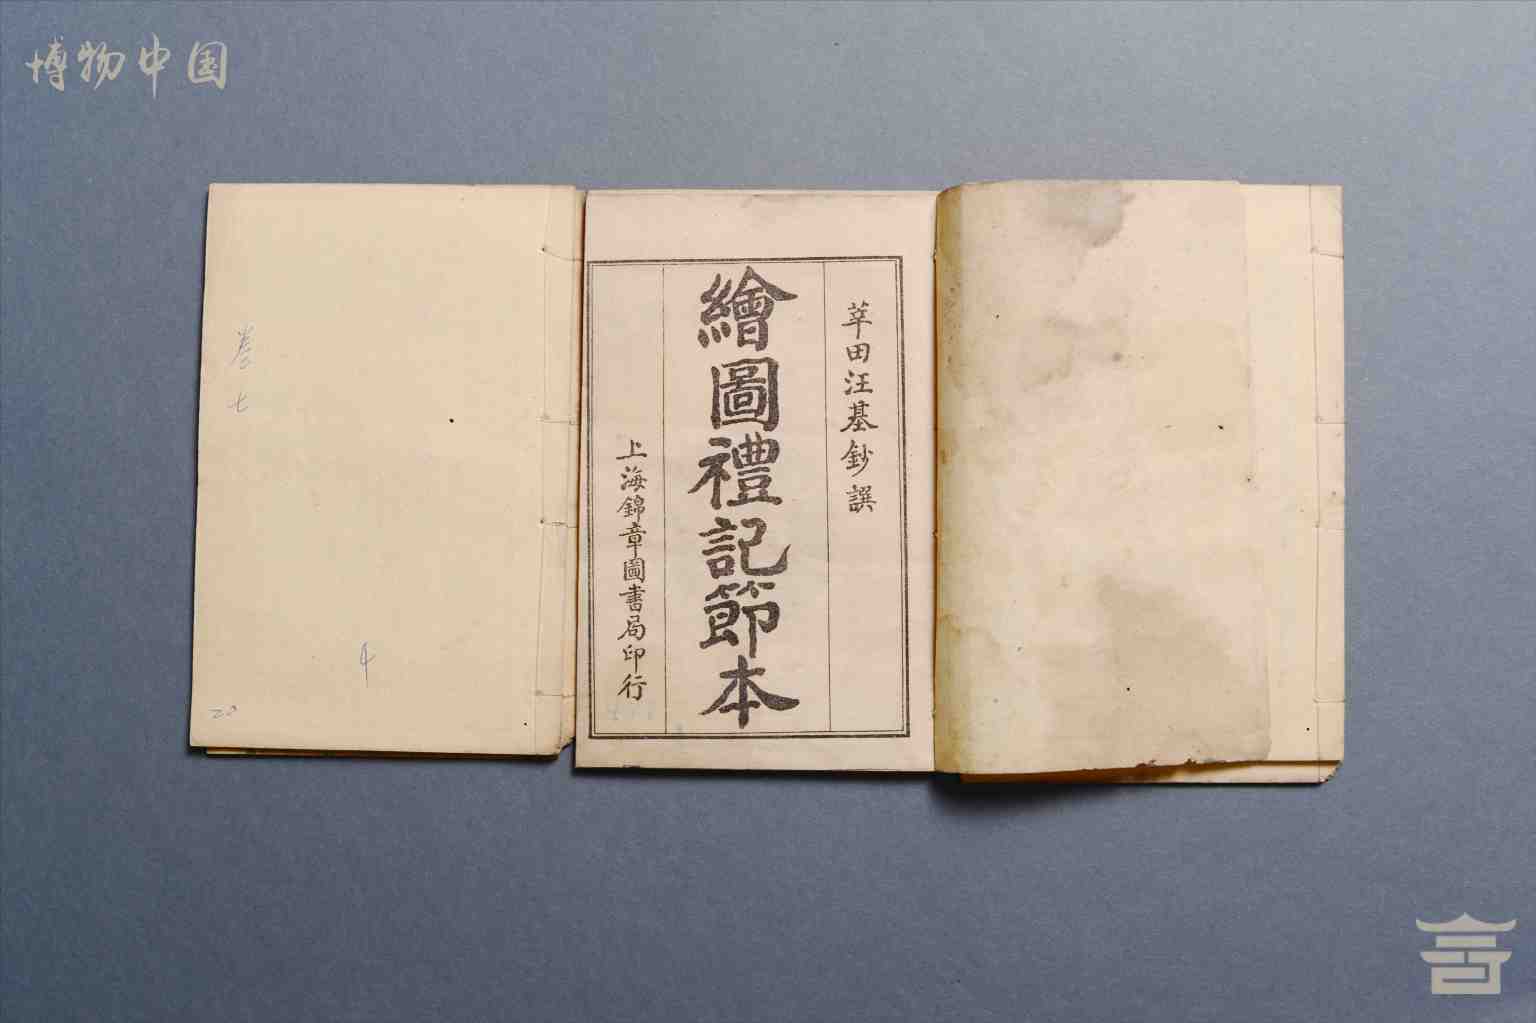 博物中国
莘田汪基鈔譔
繪圖禮記節本
上海錦章圖書局印行
卷七
20